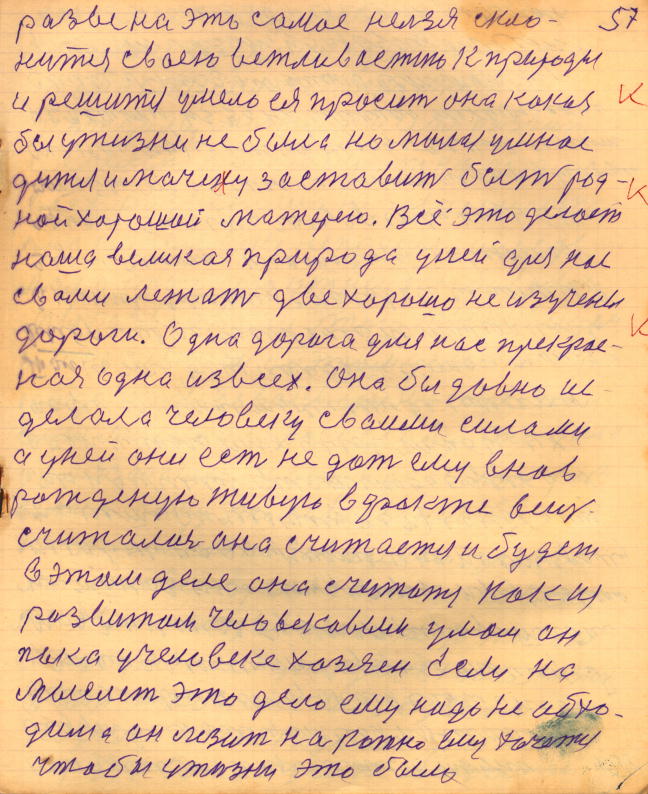 разве на эть самое нелзя скло- 57
нится своею ветливастию к природы
и решится умело ея просит она какая
бы ужизни не была но милая умное
дитя и мачеху заставит быт род-
ной хорошой матерею. Всё это делает
наша великая природа уней для нас
свами лежат две хорошо не изучены
дороги. Одна дорога для нас прекрас-
ная одна извсех. Она бы довно из-
делала человеку своими силами
а уней они ест не дат ему внов
рожденую живую в факте вещ.
считалас она считается и будет
в этом деле она считатя пакия
развитом человековым умом он
пока учеловеке хозяен Если на
мыслет это дело ему надо не обхо-
дима он лезит на рожно ему хочется
чтобы ужизни это было